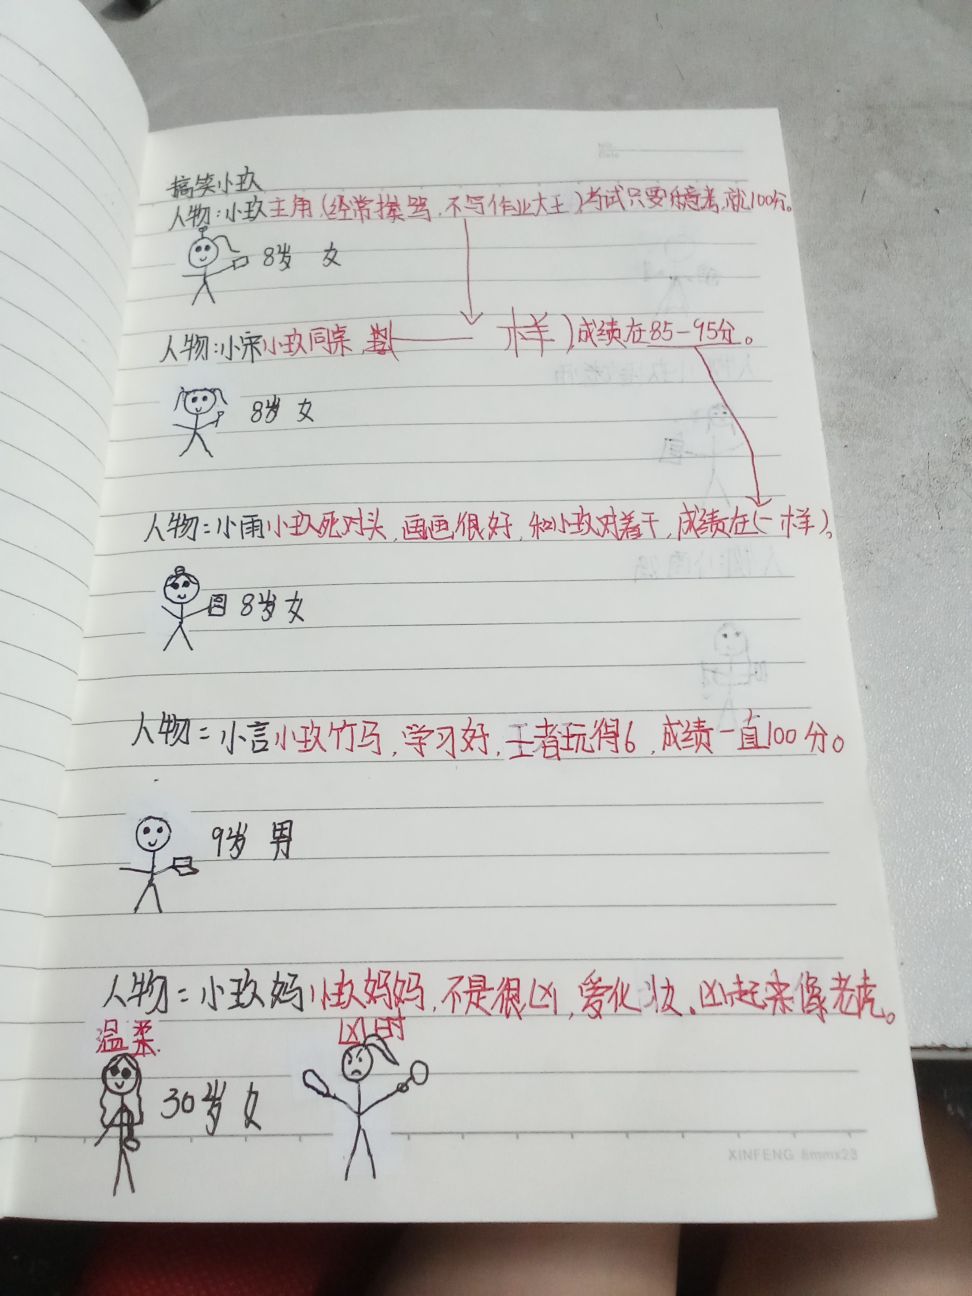 搞笑小玖
人物:小玖主角(经常挨骂,不写作业大王)考试只要随意考,就100分。
8岁 女
人物:小宋小玖同桌, 一样)成绩在85-95分。
8岁 女
人物:小雨小玖死对头,画画很好,和小玖对着干,成绩在(一样)。
图 8岁女
人物:小言小玖竹马,学习好,王者玩得6,成绩一直100分。
9岁 男
人物:小玖妈小玖妈妈,不是很凶,爱化妆,凶起来像老虎。
温柔 凶时
30岁 女
XINFENG 8mmx23